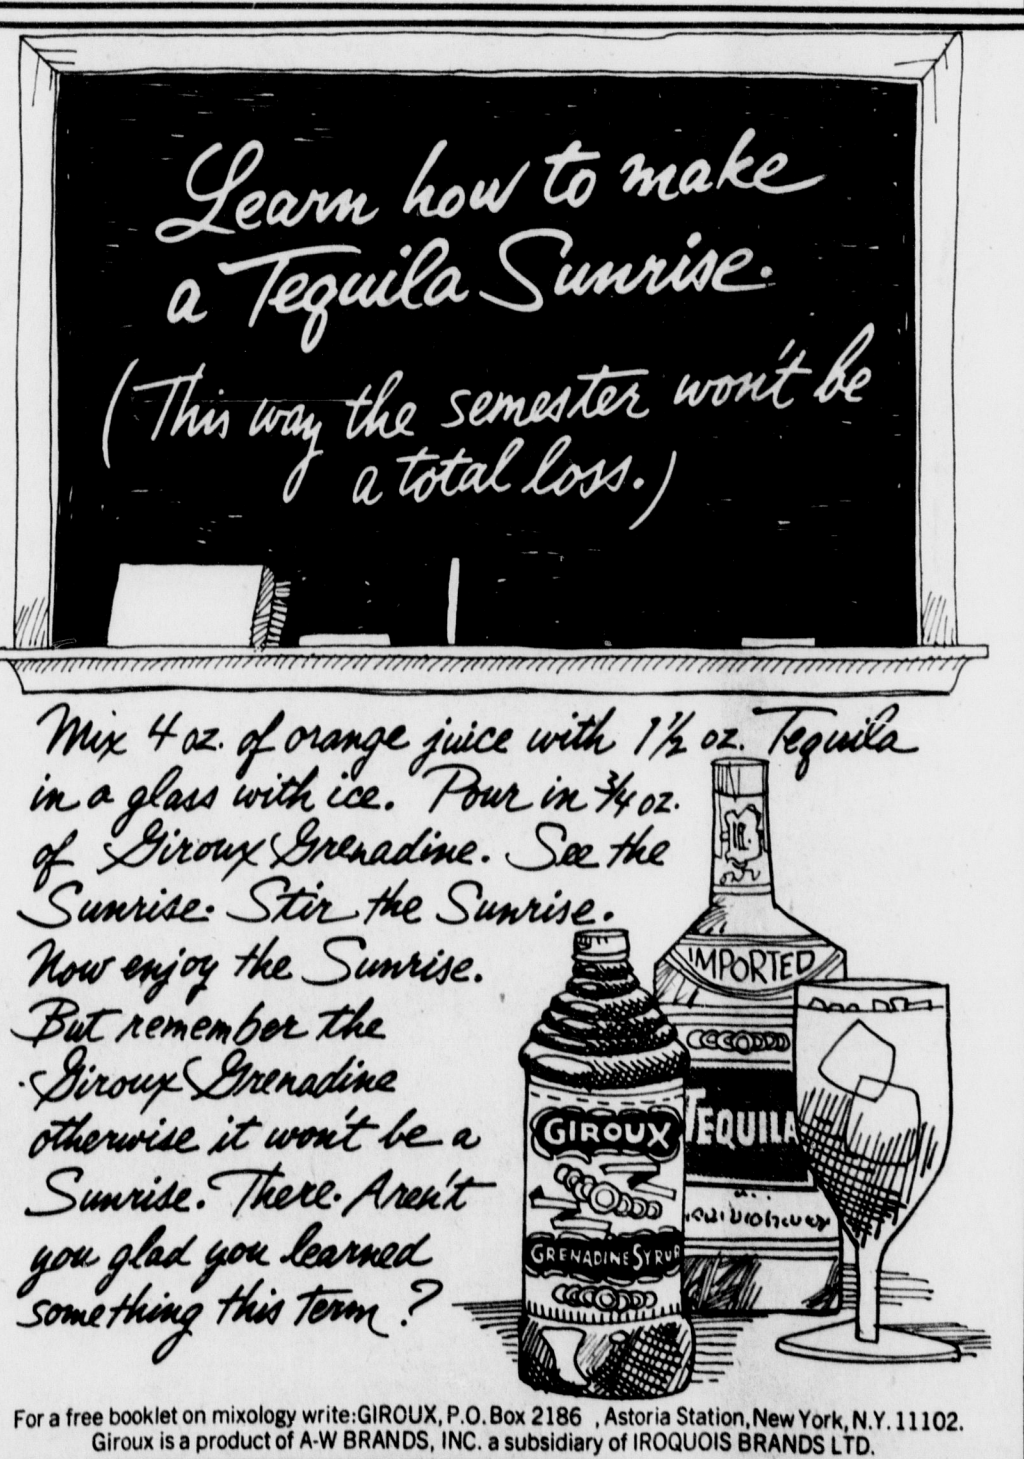 Learn how to make
a Tequila Sunrise.
(This way the semester won't be
a total loss.)
Mix 4 oz. of orange juice with 1½ oz. Tequila
in a glass with ice. Pour in ¾ oz.
of Giroux Grenadine. See the
Sunrise. Stir the Sunrise.
Now enjoy the Sunrise.
But remember the
Giroux Grenadine
otherwise it won't be a
Sunrise. There. Aren't
you glad you learned
something this term?
IMPORTED
TEQUILA
GIROUX
GRENADINE SYRUP
For a free booklet on mixology write:GIROUX, P.O. Box 2186 , Astoria Station, New York, N.Y. 11102.
Giroux is a product of A-W BRANDS, INC. a subsidiary of IROQUOIS BRANDS LTD.